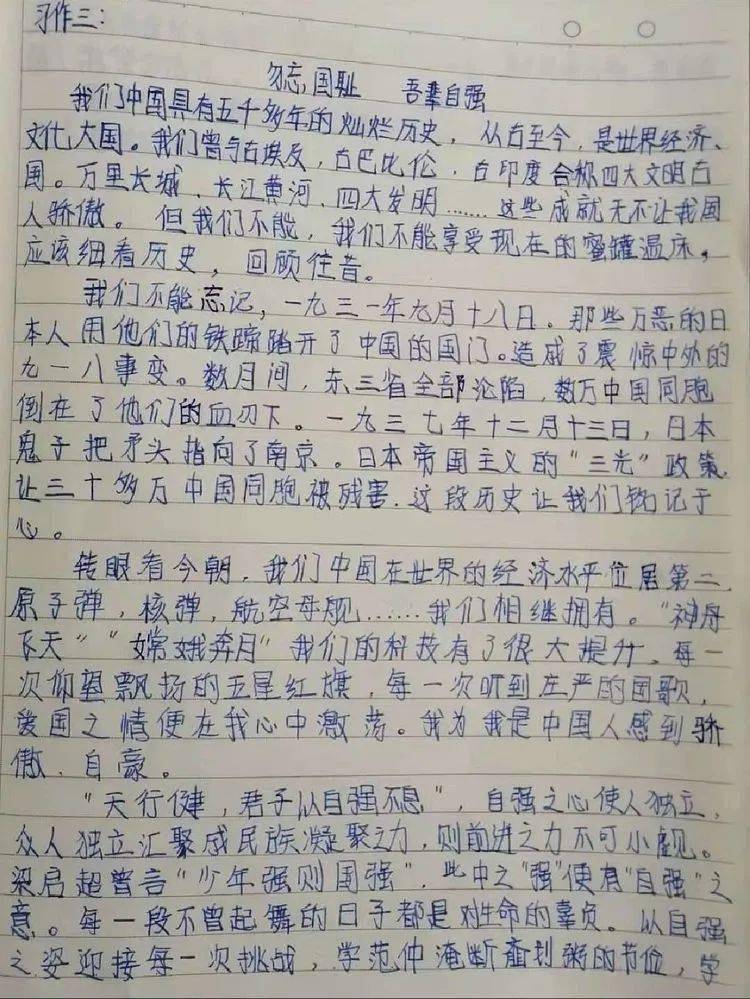 习作三:
勿忘国耻 吾辈自强
我们中国具有五千多年的灿烂历史，从古至今，是世界经济、
文化大国。我们曾与古埃及，古巴比伦、古印度合称四大文明古
国。万里长城、长江黄河、四大发明……这些成就无不让我国
人骄傲。但我们不能，我们不能享受现在的蜜罐温床，
应该细看历史，回顾往昔。
我们不能忘记，一九三一年九月十八日。那些万恶的日
本人用他们的铁蹄踏开了中国的国门。造成了震惊中外的
九一八事变。数月间，东三省全部沦陷，数万中国同胞
倒在了他们的血刃下。一九三七年十二月十三日，日本
鬼子把矛头指向了南京。日本帝国主义的“三光”政策
让三十多万中国同胞被残害.这段历史让我们铭记于
心。
转眼看今朝，我们中国在世界的经济水平位居第二，
原子弹，核弹，航空母舰……我们相继拥有。“神舟
飞天”“嫦娥奔月”我们的科技有了很大提升、每一
次仰望飘扬的五星红旗，每一次听到庄严的国歌，
爱国之情便在我心中激荡。我为我是中国人感到骄
傲、自豪。
“天行健，君子以自强不息”，自强之心使人独立，
众人独立汇聚成民族凝聚之力，则前进之力不可小觑。
梁启超曾言“少年强则国强”，此中之“强”便有“自强”之
意。每一段不曾起舞的日子都是对生命的辜负。以自强
之姿迎接每一次挑战，学范仲淹断齑划粥的节俭，学